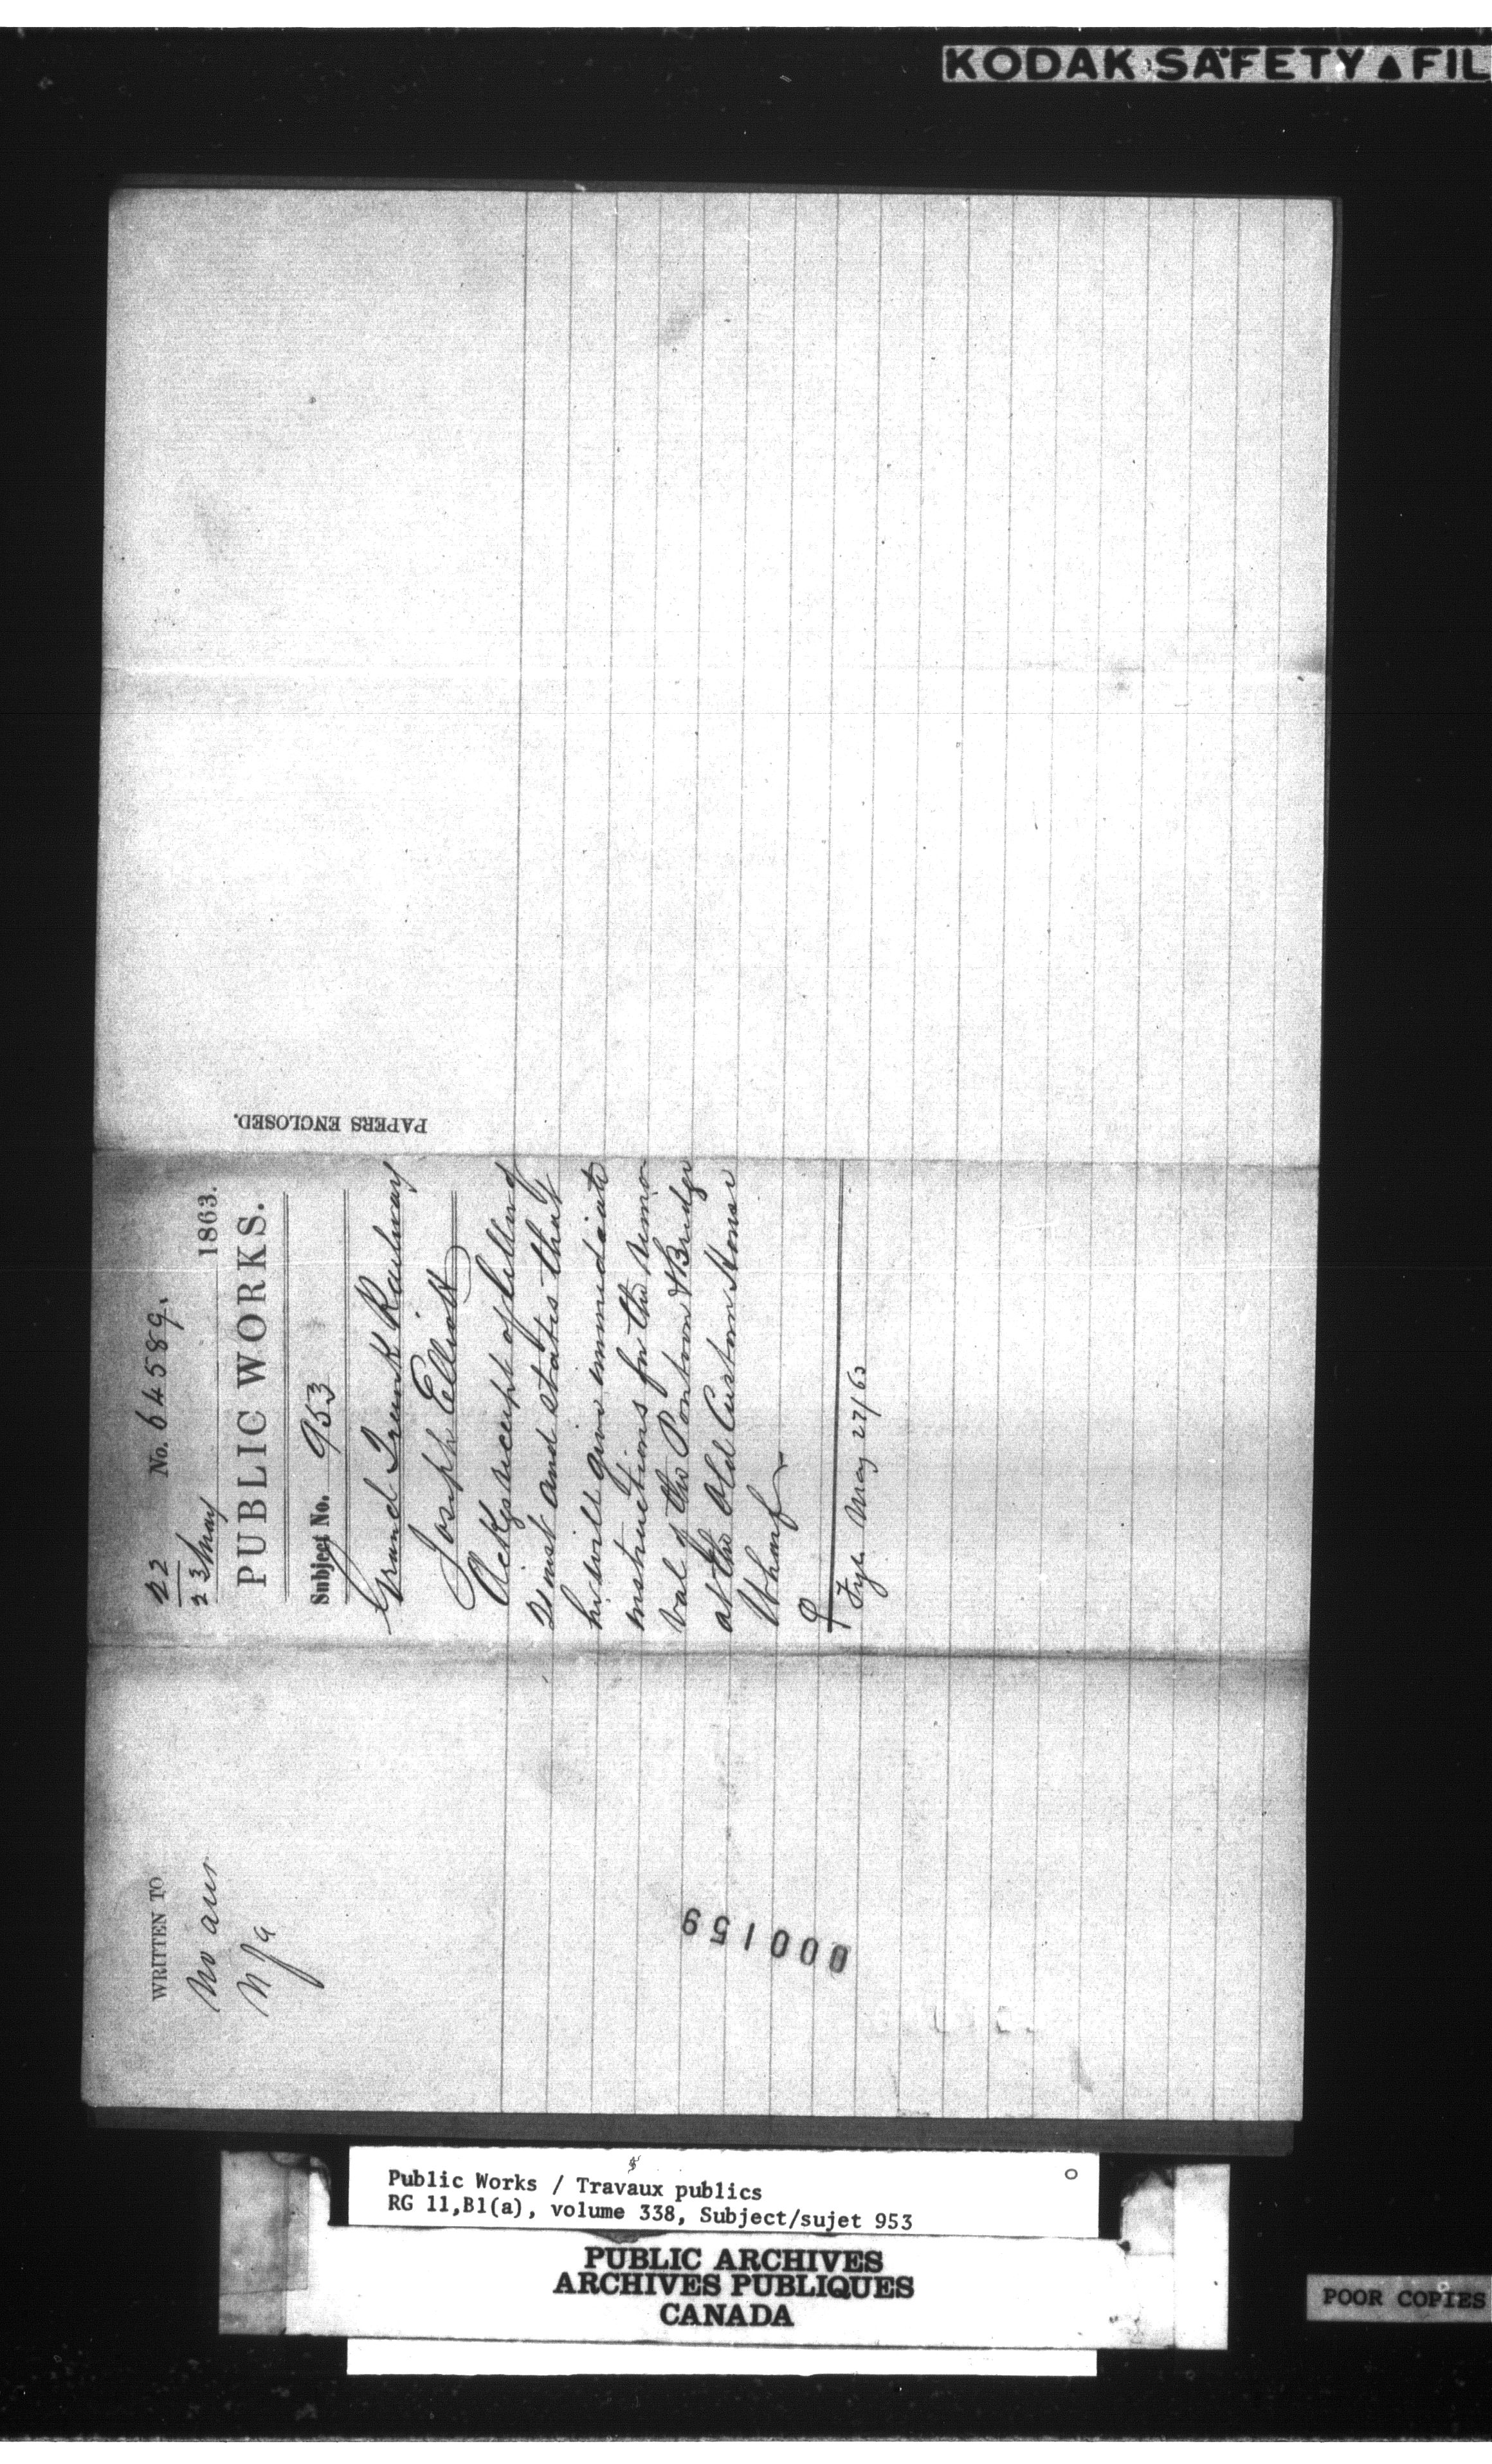 KODAK SAFETY ▲ FIL
22
No. 64589.
23 May 1863.
PUBLIC WORKS.
Subject No. 953
Grand Trunk Railway
Joseph Elliott
Ackgs receipt of letter of
21 inst and states that
he will give immediate
instructions for the remo
val of the Pontoon & Bridge
at the Old Custom House
Wharf
Fyle May 22/63
PAPERS ENCLOSED.
WRITTEN TO
No ans
000159
Public Works / Travaux publics
RG 11,B1(a), volume 338, Subject/sujet 953
PUBLIC ARCHIVES
ARCHIVES PUBLIQUES
CANADA
POOR COPIES